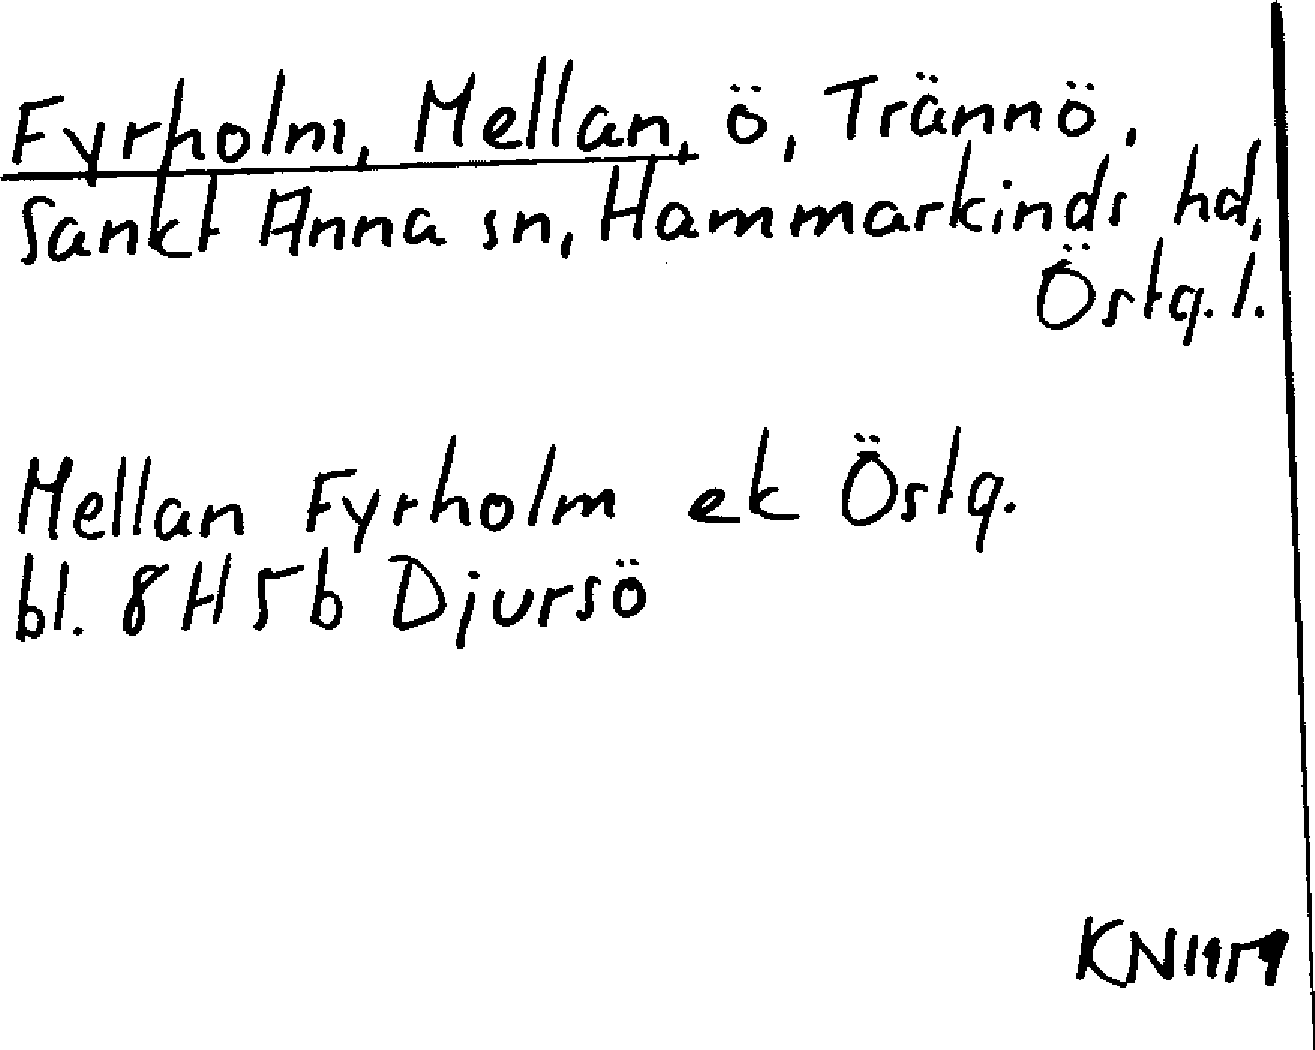 Fyrholm, Mellan, ö, Trännö,
Sankt Anna sn, Hammarkinds hd,
Östg. l.
Mellan Fyrholm ek Östg.
bl. 8H5b Djursö